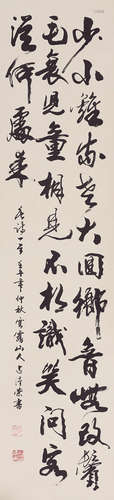 少小離家老大回鄉音無改鬢
毛衰兒童相見不相識笑問客
從何處來
唐詩一首 仲秋 山人 書